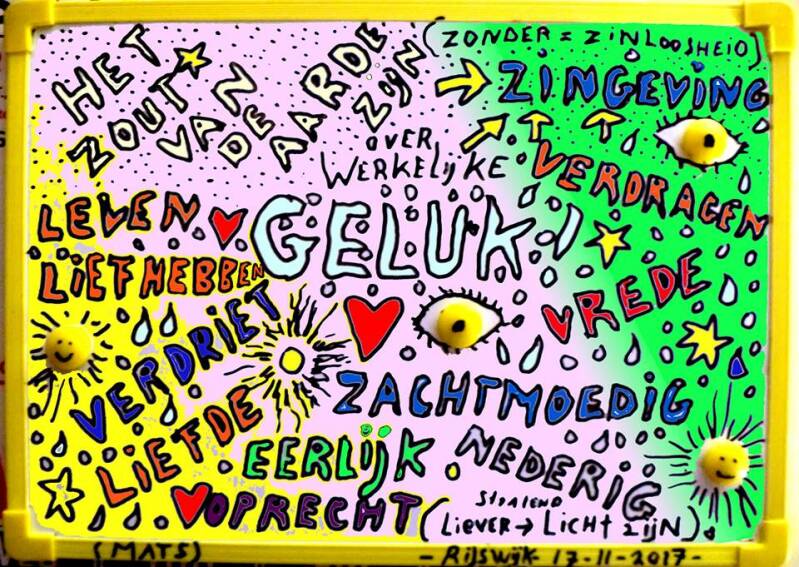 HET
ZOUT
VAN
DE
AARDE
ZIJN
(ZONDER = ZINLOOSHEID)
ZINGEVING
OVER
WERKELIJKE
VERDRAGEN
LEVEN
GELUK!
LIEFHEBBEN
VREDE
VERDRIET
ZACHTMOEDIG
LIEFDE
EERLIJK
NEDERIG
OPRECHT
STRALEND
(LIEVER → LICHT ZIJN)
(MATS) - RIJSWIJK 17-11-2017-